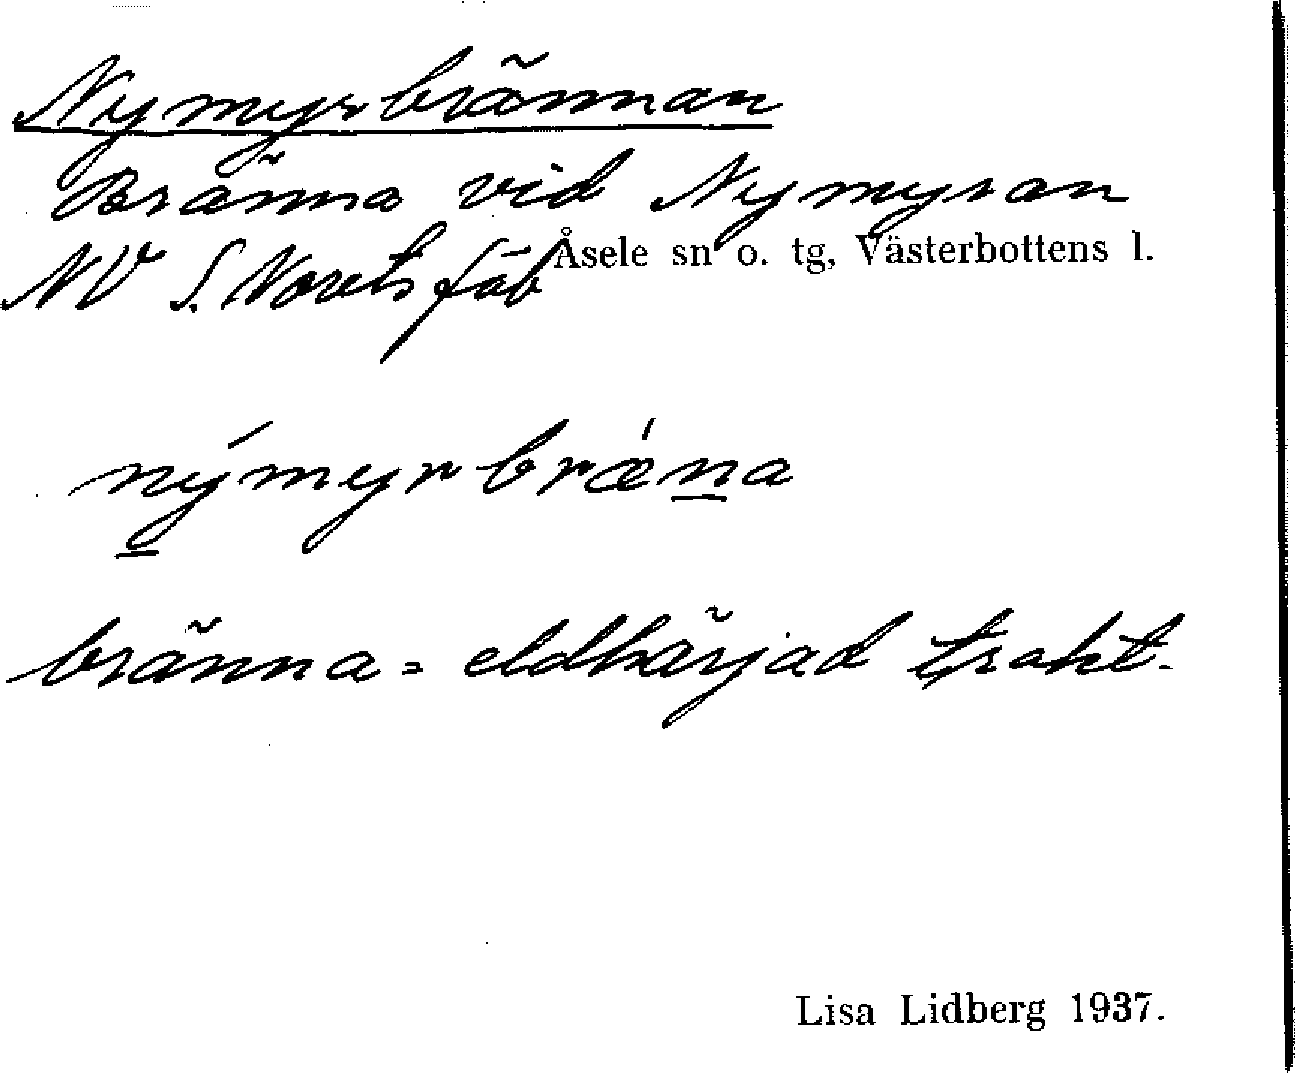 Nymyrbrännan
Bränna vid Nymyran
Åsele sn o. tg, Västerbottens l.
NV S. Norets fäb
nýmyrbrǽna
bränna = eldhärjad trakt.
Lisa Lidberg 1937.